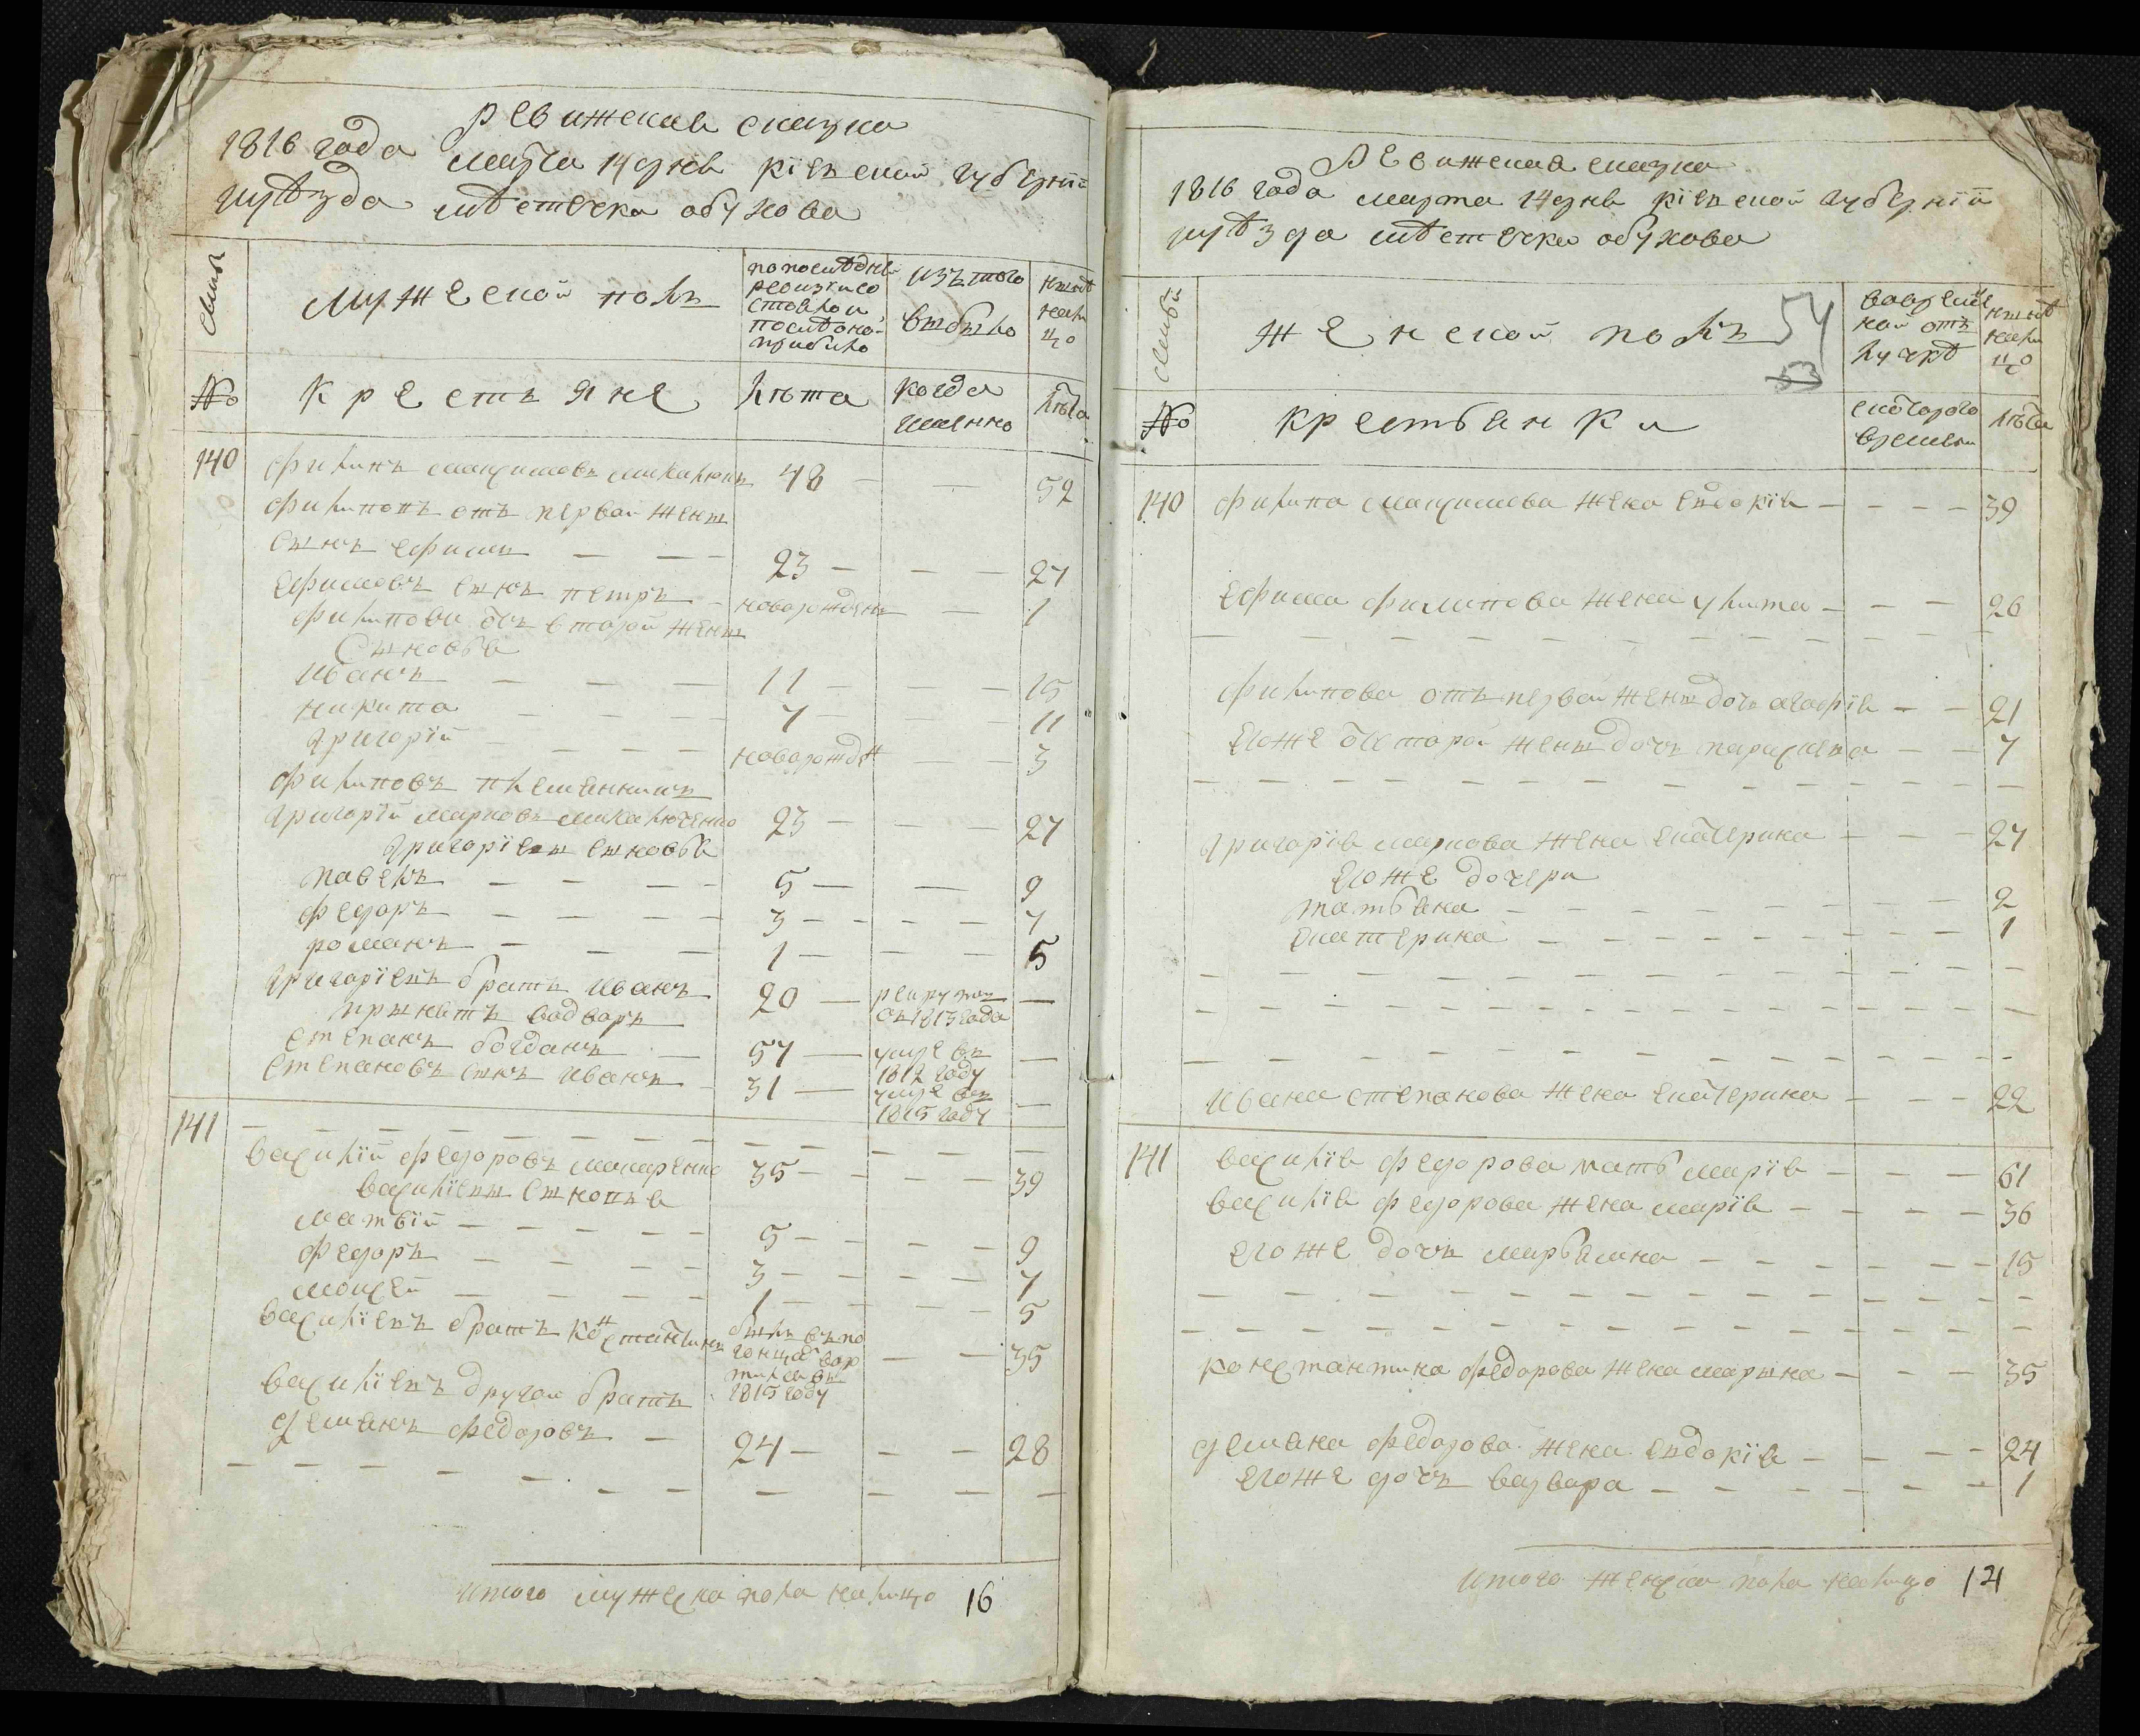 Ревижская сказка
1816 года марта 14 дня Кіевской губерніи
уѣзда мѣстечка обухова
семьи
мужеской полъ
по последней ревизіи состояло и после оно прибило
изъ того выбыло
нынѣ налицо
№
Крестьяне
лѣта
когда имянно
лѣта
140 Филипъ Максимовъ 48 — — 52
Филиповъ отъ первой жены
сынъ Ефимъ — — — 23 — — — 27
Ефимовъ сынъ Петръ — новорожденъ — 1
Филипови отъ второй жены
Сыновья
Иванъ — — — 11 — — — 15
Никита — — — 7 — — — 11
Григорій — — — — новорожден — — 3
Филиповъ племянникъ
Григорій Марковъ 23 — — — 27
Григоріевы сыновья
Павелъ — — — — 5 — — 9
Федоръ — — — — 3 — — — — 7
Романъ — — — 1 — — — 5
Григоріевъ братъ Иванъ 20 — рекрутъ —
съ 1813 года
принятъ водворъ
Степанъ Богданъ — 57 — умре въ —
1812 году
Степановъ сынъ Иванъ — 31 — умре въ —
1815 году
141 — — — — — — — — — — — — —
Василій Федоровъ Макаренко 35 — — — — 39
Василіевы сыновья
Матвій — — — — — 5 — — — — 9
Федоръ — — — — 3 — — — — 7
Моисей — — — — 1 — — — — 5
Василіевъ братъ Константинъ — — 35
1815 году
Василіевъ другой братъ
Демьянъ Федоровъ — 24 — — — 28
— — — — — — — — — — — —
Итого мужеска пола налицо 16
Ревижская сказка
1816 года марта 14 дня Кіевской губерніи
уѣзда мѣстечка обухова
54
53
семьи
женской полъ
во временной отлучкѣ
нынѣ налицо
№
крестьянки
с которого времени
лѣта
140 Филипа Максимова жена Евдокія — — — — 39
Ефима Филипова жена Улита — — — 26
— — — — — — — — — — — —
Филипова отъ первой жены дочь Агафія — — 21
его же от второй жены дочь Параскева — — 7
— — — — — — — — — — — —
Григорія Маркова жена Екатерина — — — 27
его же дочери
Татьяна — — — — — — — 2
Екатерина — — — — — — — 1
— — — — — — — — — — — —
— — — — — — — — — — — —
— — — — — — — — — — — —
Ивана Степанова жена Екатерина — — — 22
141 Василія Федорова мать Марія — — — 61
Василія Федорова жена Марія — — — — 36
его же дочь Марьяна — — — — — — 15
— — — — — — — — — — — —
— — — — — — — — — — — —
Константина Федорова жена Марына — — — 35
Демьяна Федорова жена Евдокія — — — — 24
его же дочь Варвара — — — — — — 1
Итого женска пола налицо 14